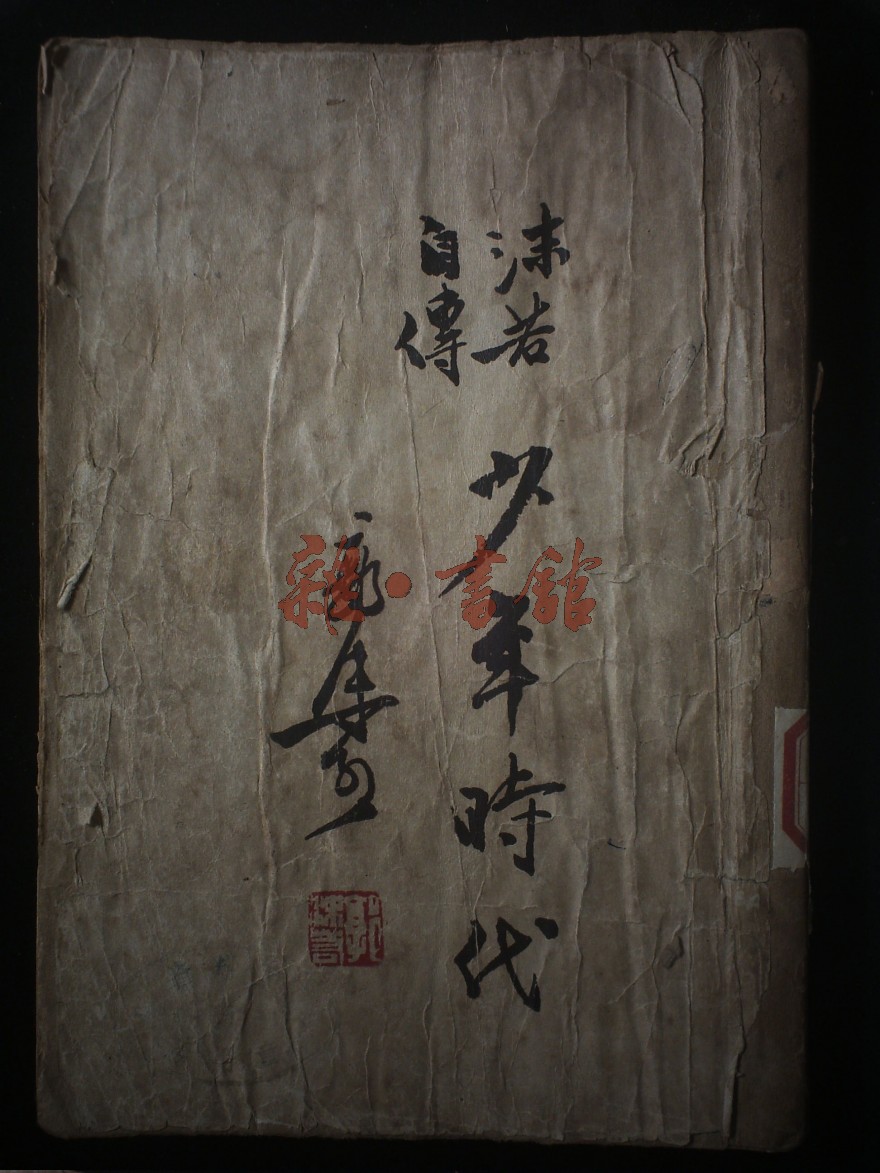 沫若
自傳
少年時代
郭沫若
雜·書館